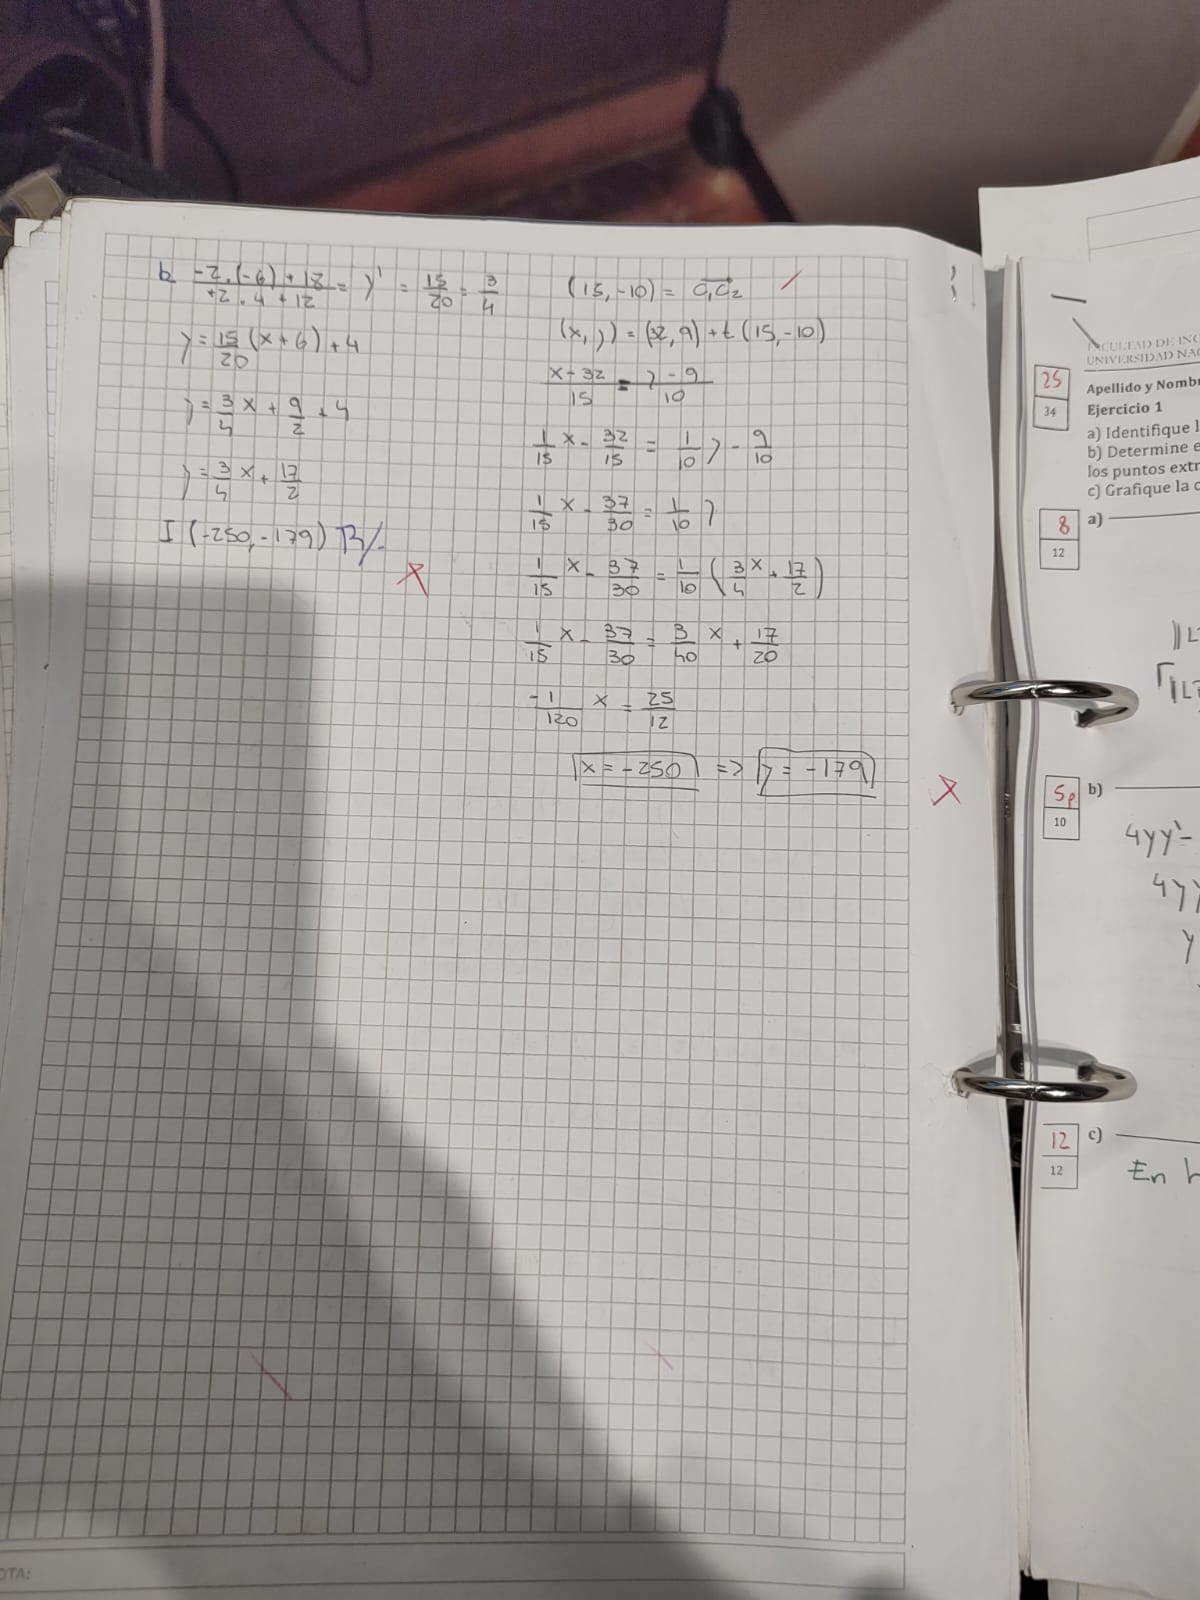 b (-2.(-6)+18)/(+2.4+12) = y' = 15/20 = 3/4
y = 15/20 (x+6)+4
y = 3/4 x + 9/2 + 4
y = 3/4 x + 17/2
I (-250,-179)
(15,-10) = C₁C₂
(x,y) = (32,9)+t(15,-10)
(x-32)/15 = (y-9)/10
1/15 x - 32/15 = 1/10 y - 9/10
1/15 x - 37/30 = 1/10 y
1/15 x - 37/30 = 1/10 (3/4 x + 17/2)
1/15 x - 37/30 = 3/40 x + 17/20
-1/120 x = 25/12
x = -250 => y = -179
OTA:
FACULTAD DE ING
UNIVERSIDAD NAC
25
34
Apellido y Nombr
Ejercicio 1
a) Identifique l
b) Determine e
los puntos extr
c) Grafique la c
8
12
a)
5p
10
b)
4yy'-
4yy
y
12
12
c)
En h